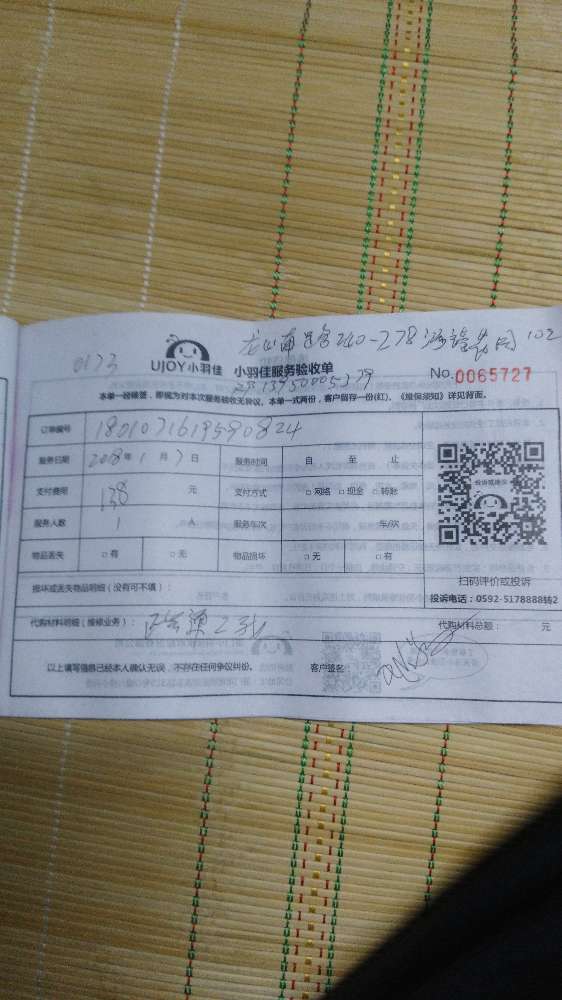 龙山南路240-278源譜花园102
0173 UJOY小羽佳 小羽佳服务验收单 No:0065727
13950005379
本单一经碳签，即视为对本次服务验收无异议。本单一式两份，客户留存一份(红)。《维保须知》详见背面。
订单编号 1801071619590824
服务日期 2018年1月7日 服务时间 自 至 止
支付费用 138 元 支付方式 □网络 □现金 □转账
服务人数 1 人 服务车次 车/次
物品丢失 □有 □无 物品损坏 □无 □有
扫码评价或投诉
损坏或丢失物品明细（没有可不填）：
投诉电话：0592-5178888转2
代购材料明细（维修业务）： 代购材料总额： 元
以上填写信息已经本人确认无误，不存在任何争议纠纷。 客户签名：